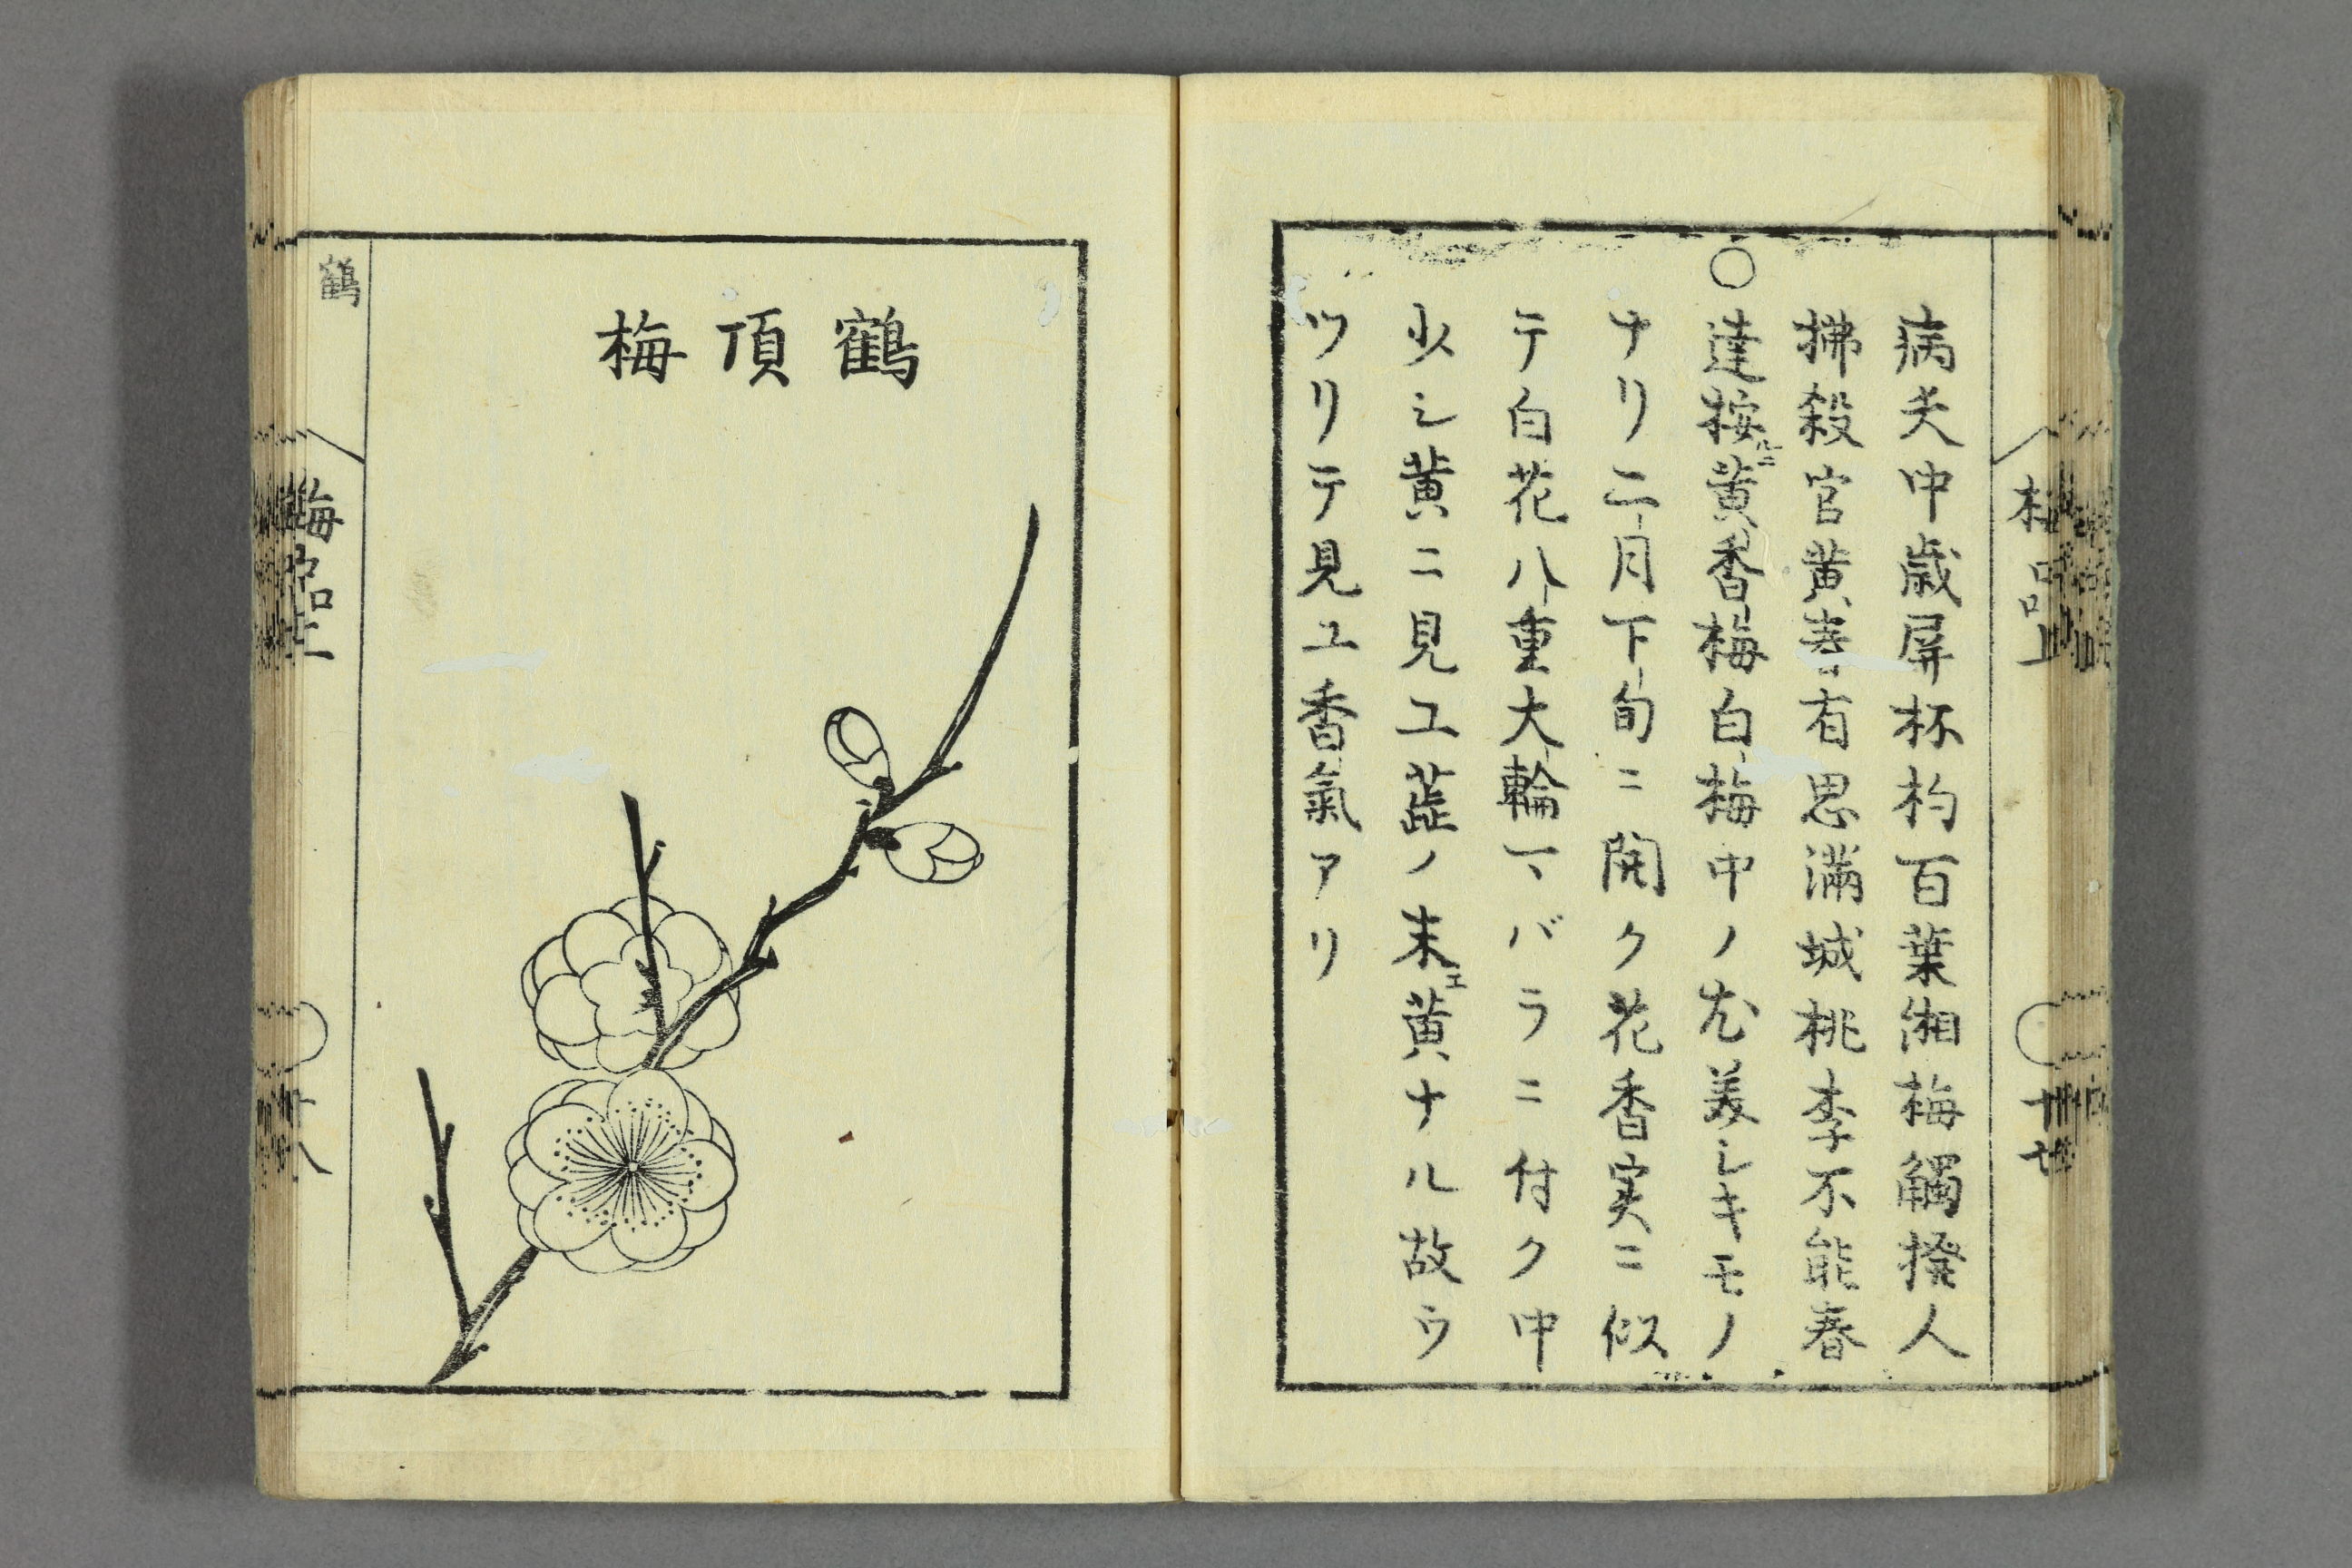 病夫中歳屏杯杓百葉緗梅觸撥人
拂殺官黄春有思満城桃李不能春
○達按ニ黄香梅白梅中ノ尤美シキモノ
ナリ二月下旬ニ開ク花香実ニ似
テ白花八重大輪マバラニ付ク中
少シ黄ニ見ユ蘂ノ末エ黄ナル故ウ
ツリテ見ユ香氣アリ
鶴頂梅
鶴
梅品上